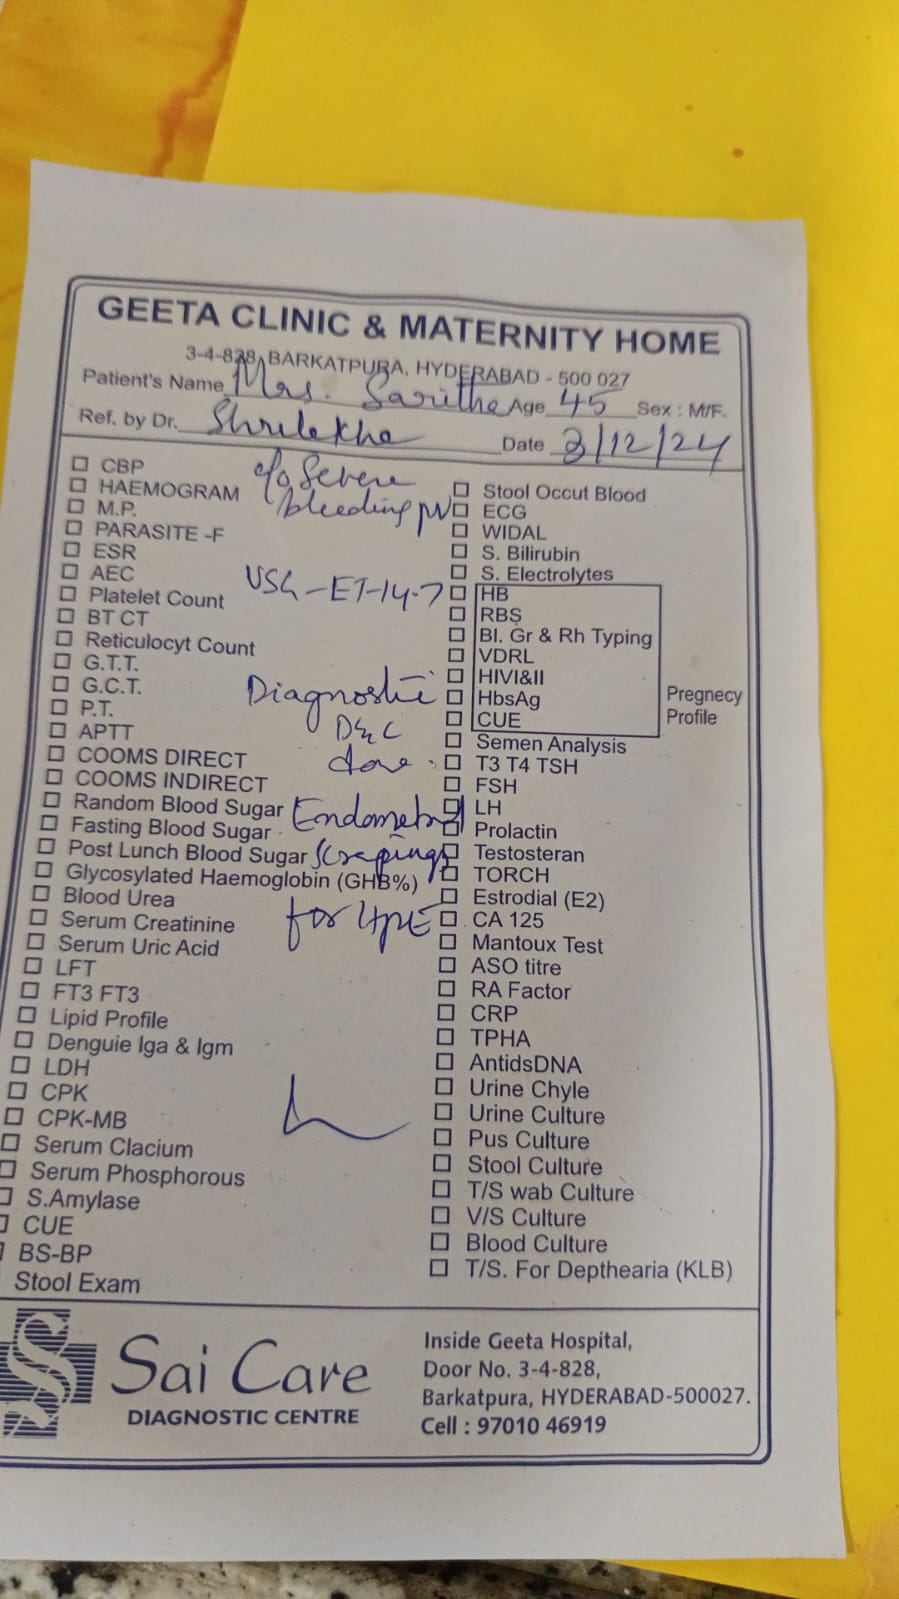 GEETA CLINIC & MATERNITY HOME
3-4-828, BARKATPURA, HYDERABAD - 500 027
Patient's Name Mrs. Saritha Age 45 Sex : M/F.
Ref. by Dr. Shrilekha Date 3/12/24
c/o Severe
bleeding PV
USG - ET-14.7
Diagnostic
D&C
done.
Endometrial
scrapings
for HPE
CBP
HAEMOGRAM
M.P.
PARASITE -F
ESR
AEC
Platelet Count
BT CT
Reticulocyt Count
G.T.T.
G.C.T.
P.T.
APTT
COOMS DIRECT
COOMS INDIRECT
Random Blood Sugar
Fasting Blood Sugar
Post Lunch Blood Sugar
Glycosylated Haemoglobin (GHB%)
Blood Urea
Serum Creatinine
Serum Uric Acid
LFT
FT3 FT3
Lipid Profile
Denguie Iga & Igm
LDH
CPK
CPK-MB
Serum Clacium
Serum Phosphorous
S.Amylase
CUE
BS-BP
Stool Exam
Stool Occut Blood
ECG
WIDAL
S. Bilirubin
S. Electrolytes
HB
RBS
Bl. Gr & Rh Typing
VDRL
HIVI&II
HbsAg
CUE
Pregnecy
Profile
Semen Analysis
T3 T4 TSH
FSH
LH
Prolactin
Testosteran
TORCH
Estrodial (E2)
CA 125
Mantoux Test
ASO titre
RA Factor
CRP
TPHA
AntidsDNA
Urine Chyle
Urine Culture
Pus Culture
Stool Culture
T/S wab Culture
V/S Culture
Blood Culture
T/S. For Depthearia (KLB)
Sai Care
DIAGNOSTIC CENTRE
Inside Geeta Hospital,
Door No. 3-4-828,
Barkatpura, HYDERABAD-500027.
Cell : 97010 46919